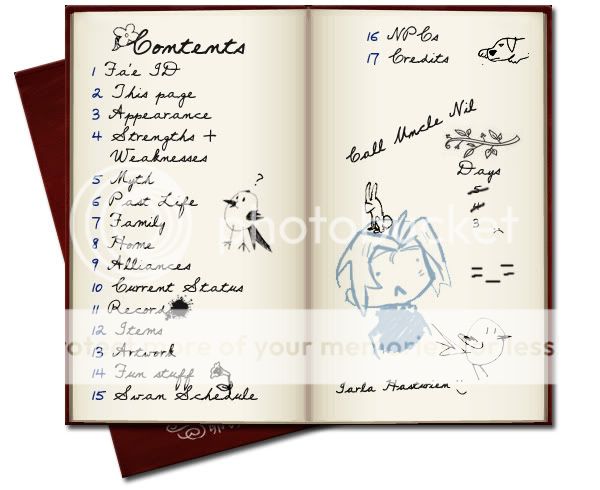 Contents
1 Fa'e ID
2 This page
3 Appearance
4 Strengths +
Weaknesses
5 Myth
6 Past Life
7 Family
8 Home
9 Alliances
10 Current Status
11 Records
12 Items
13 Artwork
14 Fun stuff
15 Swan Schedule
?
16 NPCs
17 Credits
Call Uncle Nil
Days
3
=_=
photobucket
Protect more of your memories for less